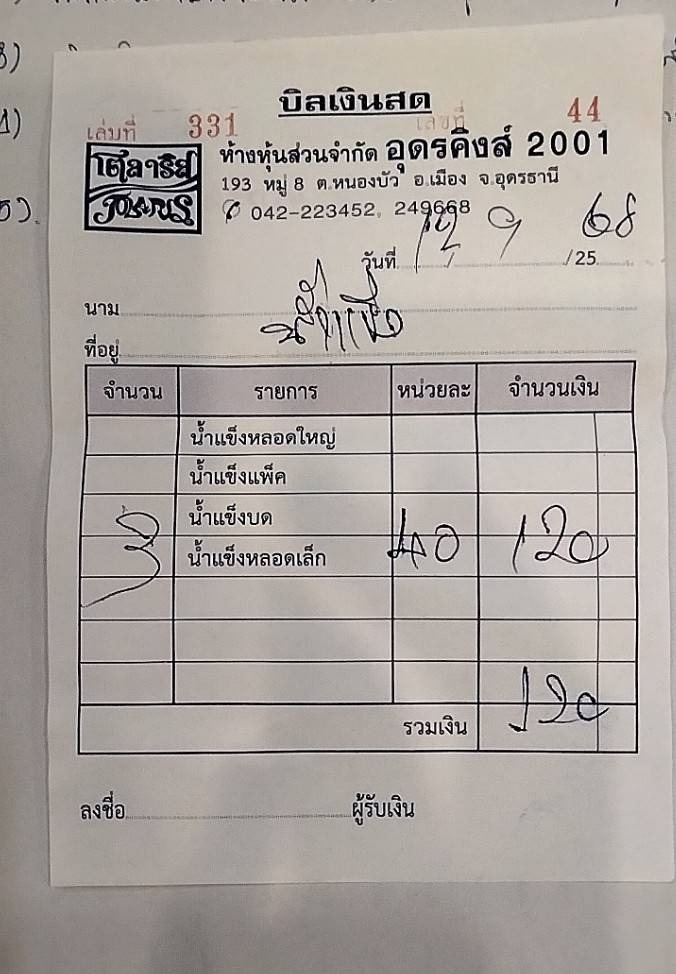 บิลเงินสด
เล่มที่ 331 เลขที่ 44
โพลาริส
POLARIS
ห้างหุ้นส่วนจำกัด อุดรคิงส์ 2001
193 หมู่ 8 ต.หนองบัว อ.เมือง จ.อุดรธานี
042-223452, 249668
วันที่ 12 9 /25 68
นาม
น้ำแข็ง
ที่อยู่
จำนวน รายการ หน่วยละ จำนวนเงิน
น้ำแข็งหลอดใหญ่
น้ำแข็งแพ็ค
น้ำแข็งบด
3 น้ำแข็งหลอดเล็ก 40 120
รวมเงิน 120
ลงชื่อ ผู้รับเงิน